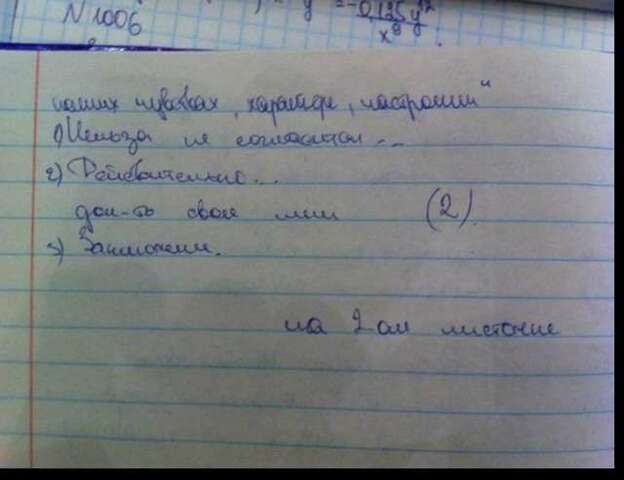 N 1006
y = -0,125y¹² / x⁹
наших чувствах, характере, настроении"
1) Нельзя не согласится...
2) Действительно...
док-ть свое мнен (2).
3) Заключение.
на 2ом листочке